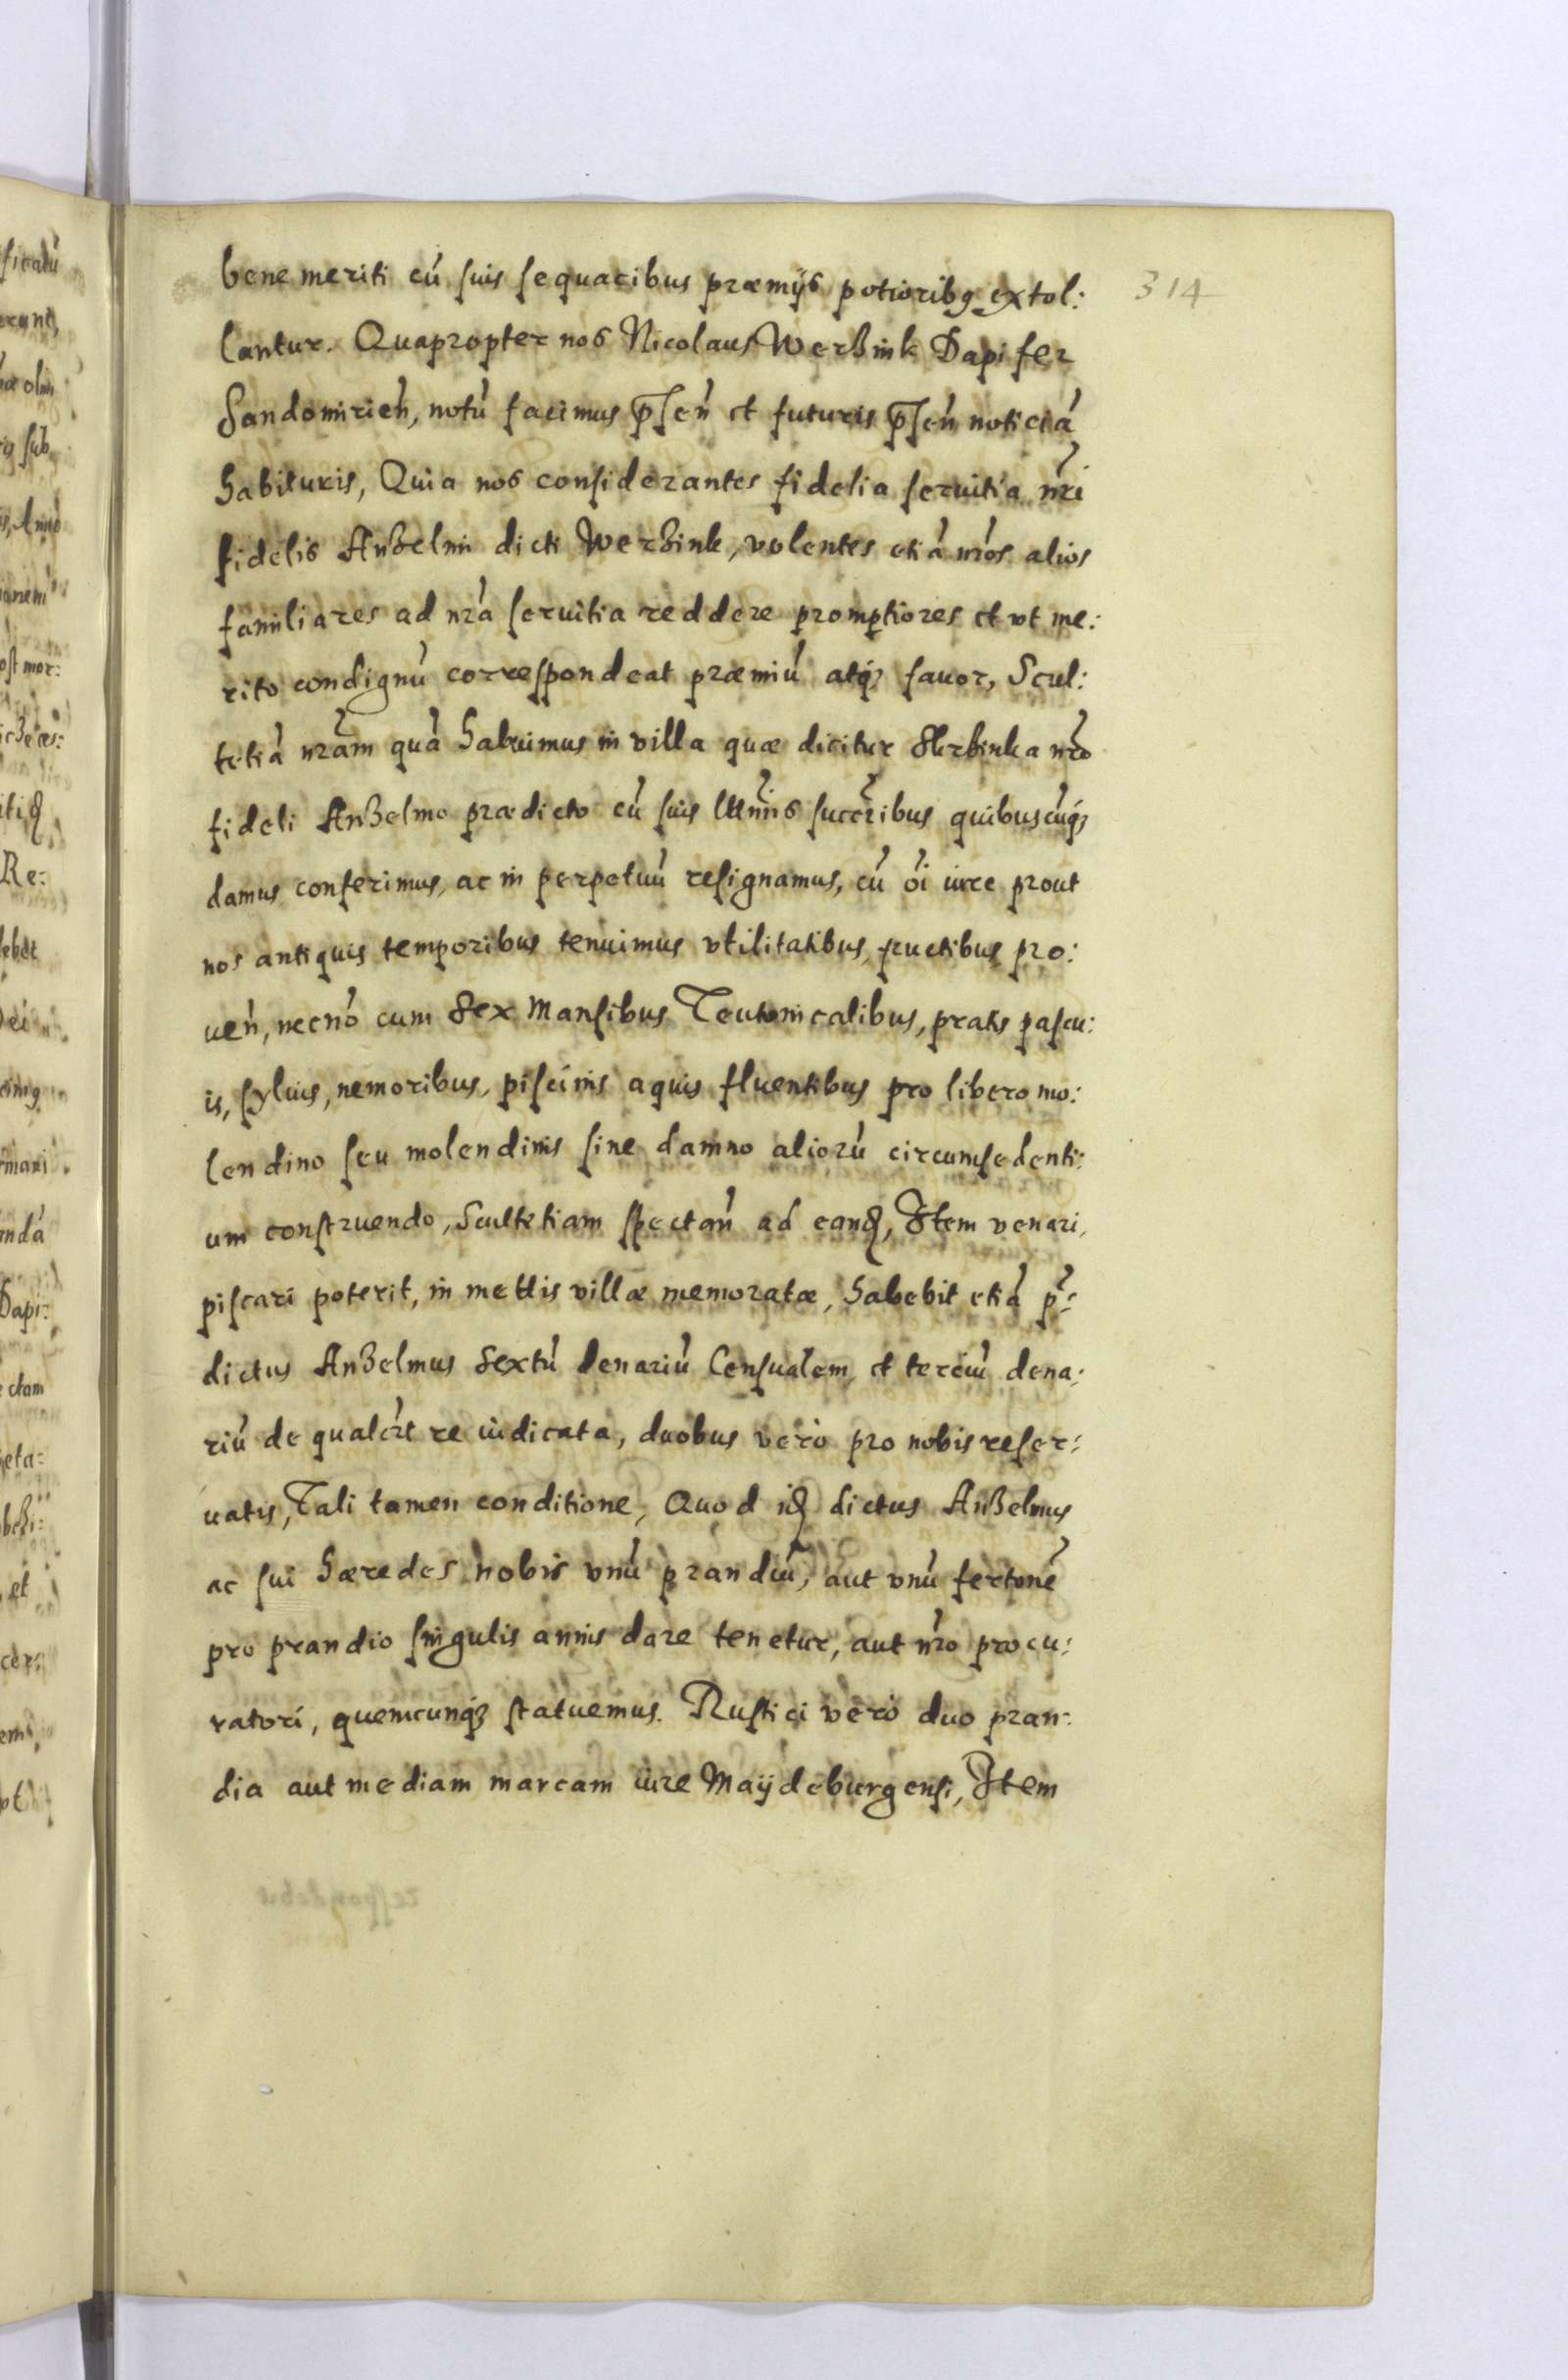 bene meriti cū suis sequacibus præmijs potioribꝯ extol:
314
lantur. Quapropter nos Nicolaus Werzink Dapifer
Sandomirień, notū facimus p̄seń et futuris p̄seń noticiā
habituris, Quia nos considerantes fidelia seruitia nr̃i
fidelis Anzelmi dicti Werzink, volentes etiā nr̃os alios
familiares ad nr̃a seruitia reddere promptiores et vt me:
rito condignū correspondeat præmiū atq̨ fauor, Scul:
tetiā nr̃am quā habuimus in villa quæ dicitur nr̃o
fideli Anzelmo prædicto cū suis lttĩmis succr̃ibus quibuscūq̨
damus conferimus, ac in perpetuū resignamus, cū oī iure prout
nos antiquis temporibus tenuimus vtilitatibus, fructibus pro:
uēn, necnō cum Sex Mansibus Teutonicalibus, pratis pascu:
is, syluis, nemoribus, piscinis aquis fluentibus pro libero mo:
lendino seu molendinis sine damno aliorū circumsedenti:
um construendo, Scultetiam spectań ad eanꝺ, Item venari,
piscari poterit, in mettis villæ memoratæ, habebit etiā p̃:
dictus Anzelmus Sextū denariū Censualem, et terciū dena:
riū de qualr̃t re iudicata, duobus verò pro nobis reser:
uatis, Tali tamen conditione, Quod iꝺ dictus Anzelmus
ac sui hæredes nobis vnū prandiū, aut vnū fertonē
pro prandio singulis annis dare tenetur, aut nr̃o procu:
ratori, quemcunq̨ statuemus. Rustici verò duo pran:
dia aut mediam marcam iure Maydeburgensi, Item